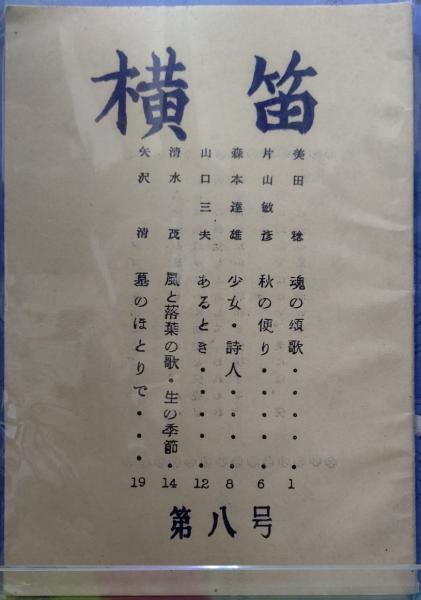 横笛
美田 稔 魂の頌歌・・・・・1
片山敏彦 秋の便り・・・・・6
森本達雄 少女・詩人・・・・8
山口三夫 あるとき・・・・・12
清水 茂 風と落葉の歌・生の季節・14
矢沢 清 墓のほとりで・・・19
第八号